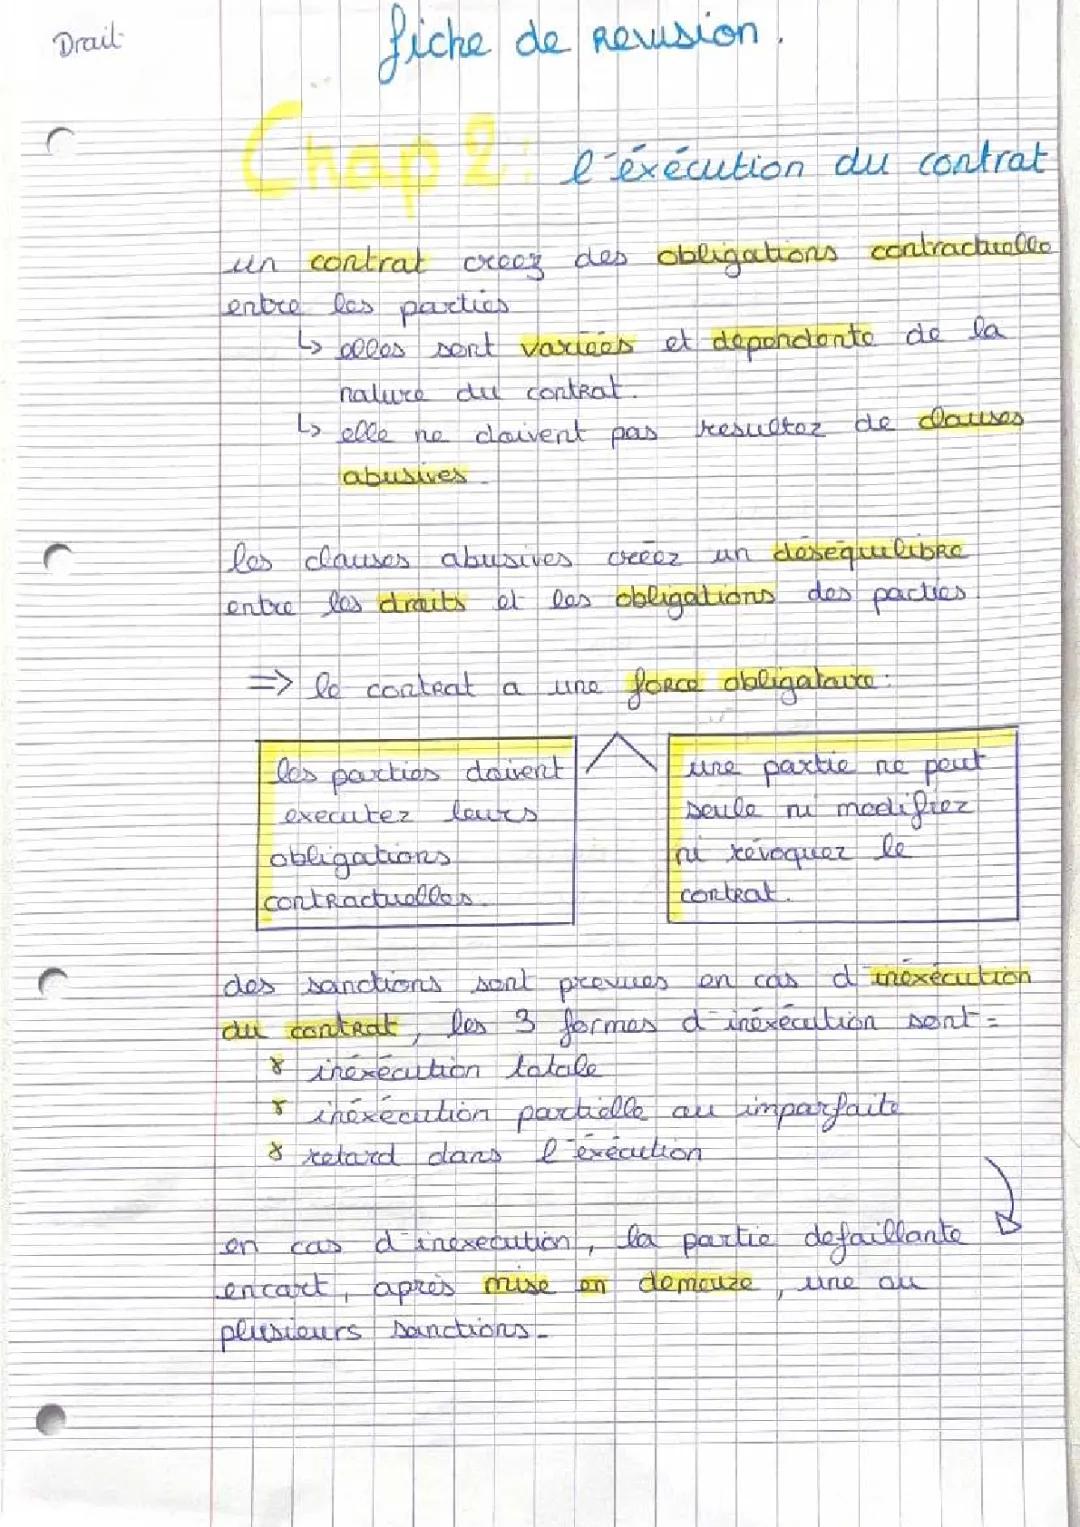 Droit
fiche de revision.
Chap 2: l'éxécution du contrat
un contrat creez des obligations contractuelle
entre les parties
↳ elles sont variées et dependante de la
nature du contrat.
↳ elle ne doivent pas resulter de clauses
abusives
les clauses abusives créez un deséquilibre
entre les droits et les obligations des parties.
=> le contrat a une force obligatoire:
les parties doivent
executer leurs
obligations
contractuelles.
une partie ne peut
seule ni modifier
ni révoquer le
contrat.
des sanctions sont prevues en cas d'inéxécution
du contrat, les 3 formes d'inéxécution sont =
* inéxécution totale
* inéxécution partielle ou imparfaite
* retard dans l'éxécution
en cas d'inexecution, la partie defaillante
encourt, après mise en demeure, une ou
plusieurs sanctions.